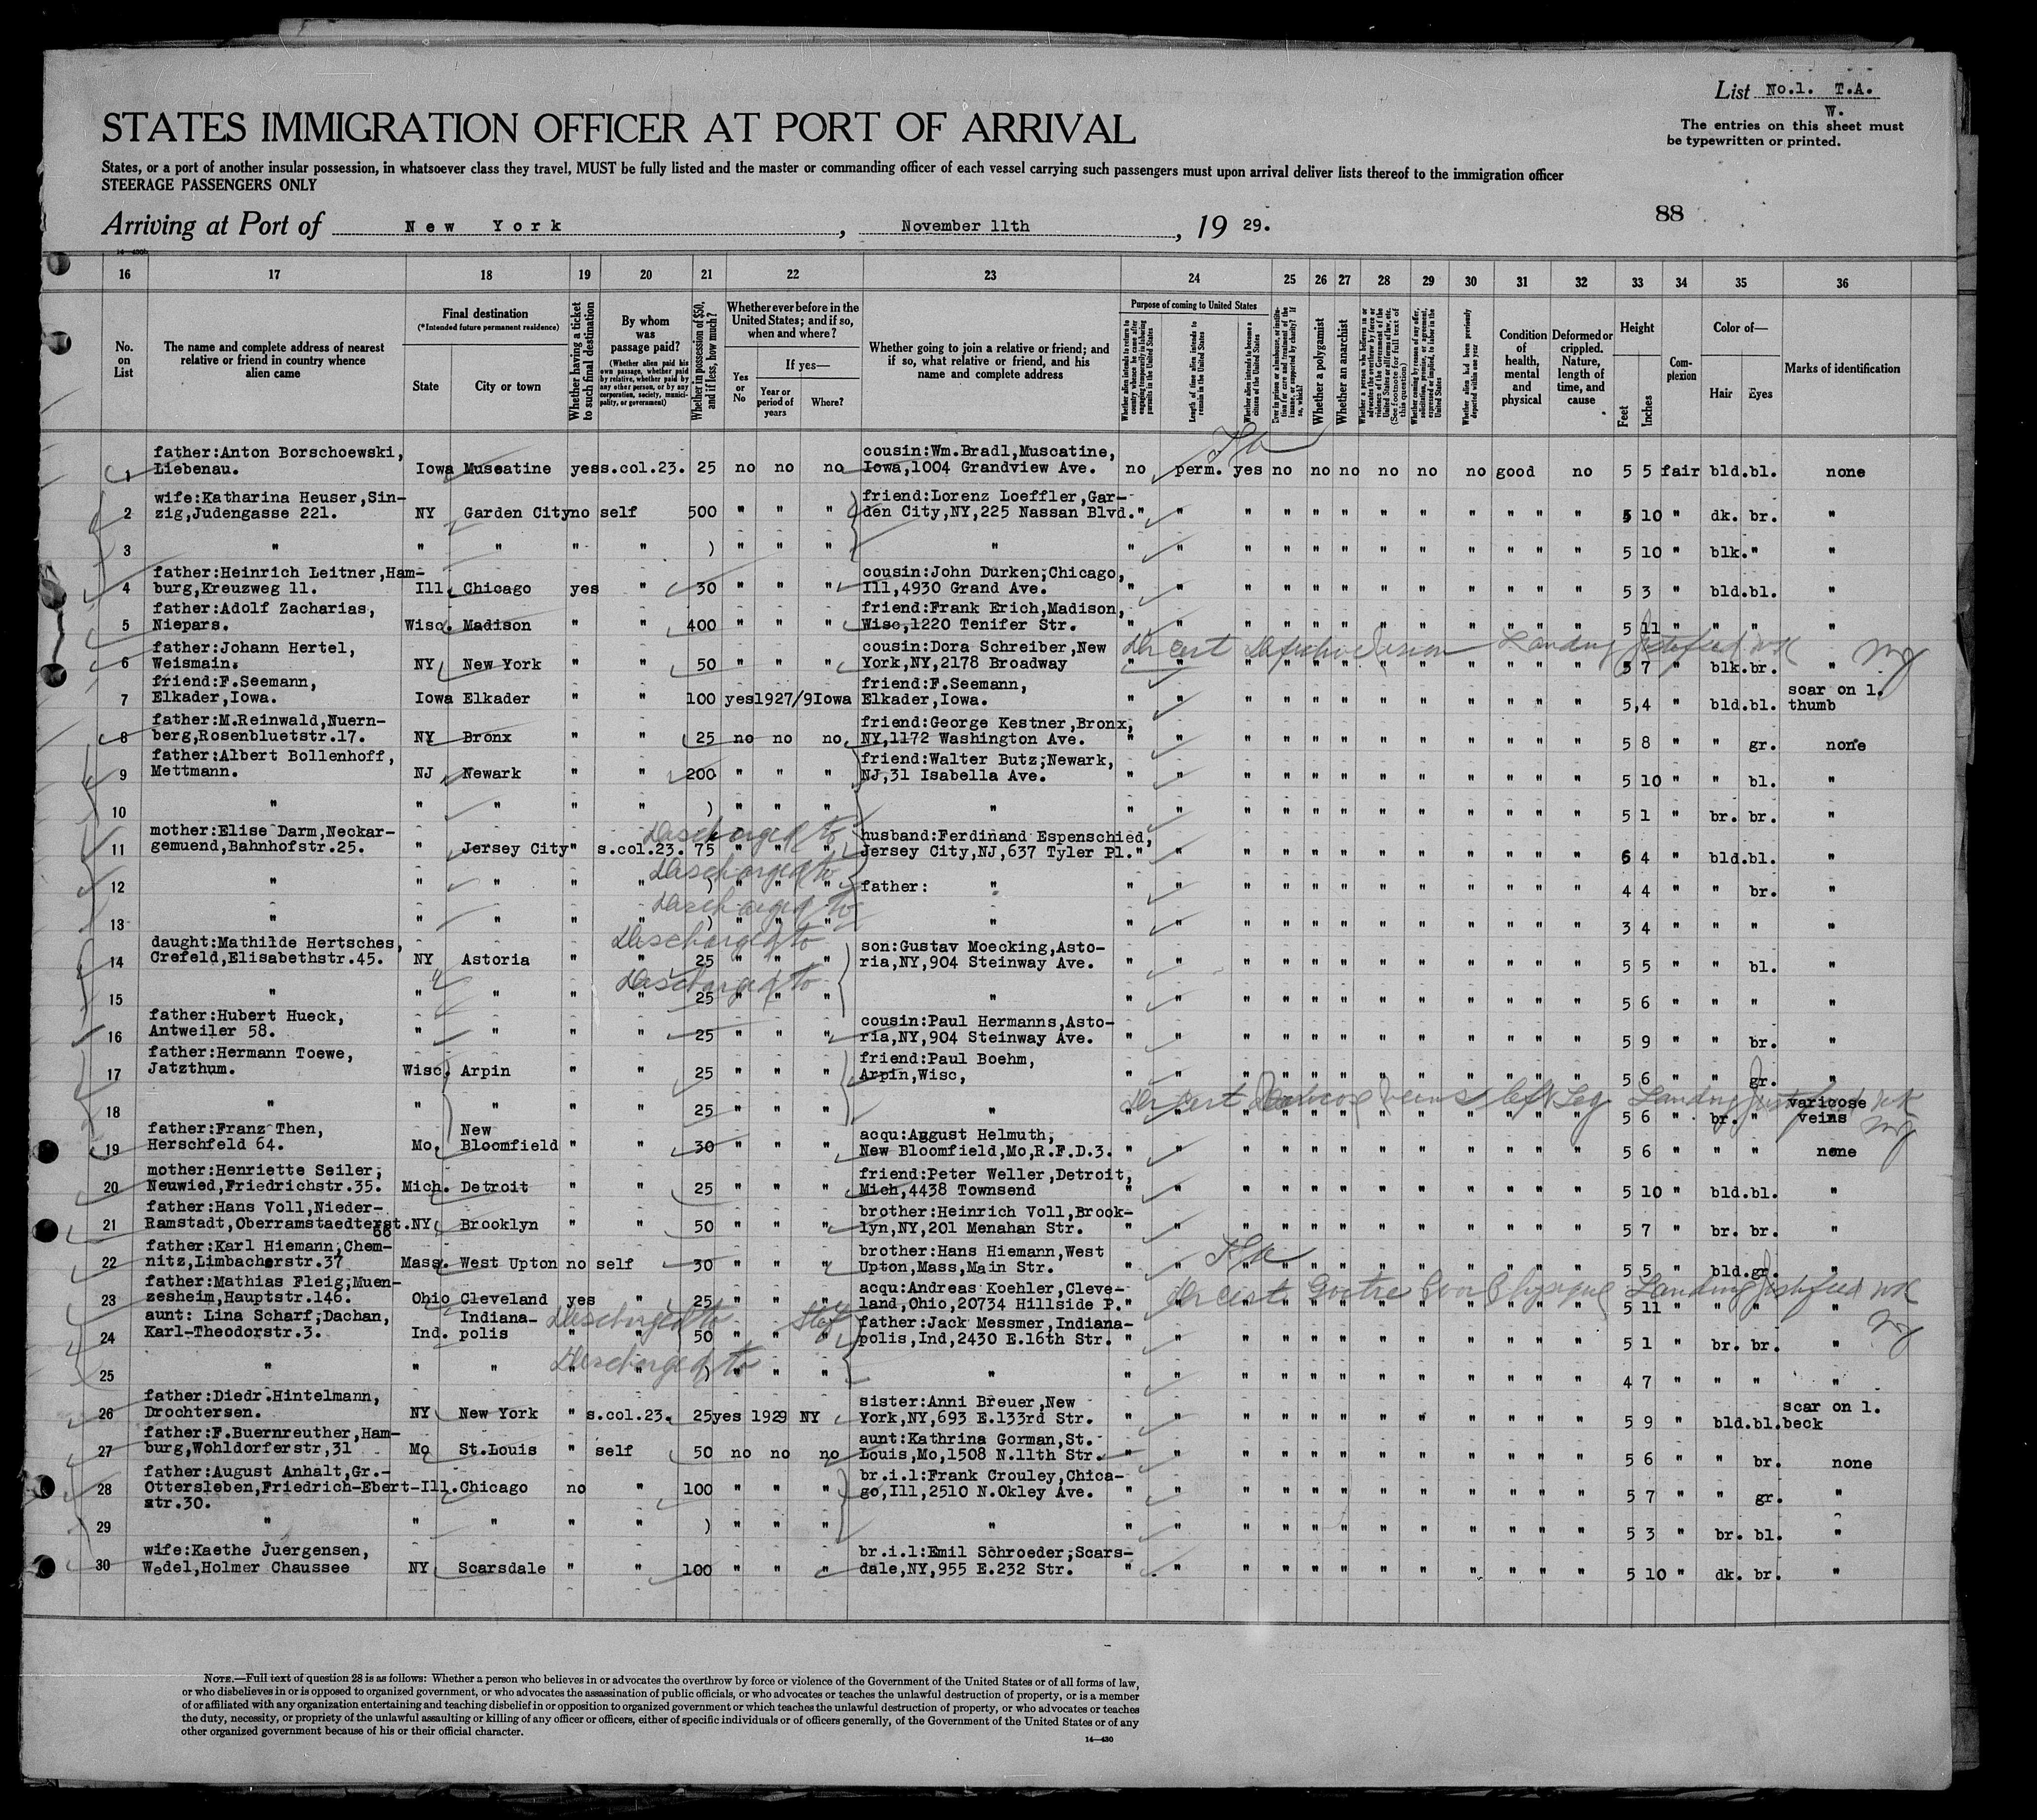 List No.1. T.A.
W.
The entries on this sheet must
be typewritten or printed.
STATES IMMIGRATION OFFICER AT PORT OF ARRIVAL
States, or a port of another insular possession, in whatsoever class they travel, MUST be fully listed and the master or commanding officer of each vessel carrying such passengers must upon arrival deliver lists thereof to the immigration officer
STEERAGE PASSENGERS ONLY
88
Arriving at Port of New York, November 11th, 19 29.
16 17 18 19 20 21 22 23 24 25 26 27 28 29 30 31 32 33 34 35 36
No. on List
The name and complete address of nearest relative or friend in country whence alien came
Final destination
(*Intended future permanent residence)
State
City or town
Whether having a ticket to such final destination
By whom was passage paid?
(Whether alien paid his own passage, whether paid by relative, whether paid by any other person, or by any corporation, society, municipality, or government)
Whether in possession of $50, and if less, how much?
Whether ever before in the United States; and if so, when and where?
Yes or No
If yes—
Year or period of years
Where?
Whether going to join a relative or friend; and if so, what relative or friend, and his name and complete address
Purpose of coming to United States
Length of time alien intends to remain in the United States
Whether alien intends to become a citizen of the United States
Whether a polygamist
Whether an anarchist
Whether alien had been previously deported within one year
Condition of health, mental and physical
Deformed or crippled. Nature, length of time, and cause
Height
Feet
Inches
Complexion
Color of—
Hair
Eyes
Marks of identification
father:Anton Borschoewski,
1 Liebenau. Iowa Museatine yes s.col.23. 25 no no no cousin:Wm.Bradl,Muscatine, Iowa,1004 Grandview Ave. no perm. yes no no no no no no good no 5 5 fair bld. bl. none
wife:Katharina Heuser,Sin-
2 zig,Judengasse 221. NY Garden City no self 500 " " " friend:Lorenz Loeffler,Gar- den City,NY,225 Nassan Blvd. " " " " " " " " " " " " 5 10 " dk. br. "
3 " " " " " ) " " " " " " " " " " " " " " " " 5 10 " blk. " "
father:Heinrich Leitner,Ham-
4 burg,Kreuzweg 11. Ill. Chicago yes " 30 " " " cousin:John Durken,Chicago, Ill,4930 Grand Ave. " " " " " " " " " " " " 5 3 " bld. bl. "
father:Adolf Zacharias,
5 Niepars. Wisc. Madison " " 400 " " " friend:Frank Erich,Madison, Wisc,1220 Tenifer Str. " " " " " " " " " " " " 5 11 " " " "
father:Johann Hertel,
6 Weismain. NY New York " " 50 " " " cousin:Dora Schreiber,New York,NY,2178 Broadway " " " " " " " " " " " " 5 7 " blk. br. "
Dr cert Defective Vision Landing justified
friend:F.Seemann,
7 Elkader,Iowa. Iowa Elkader " " 100 yes 1927/9 Iowa friend:F.Seemann, Elkader,Iowa. " " " " " " " " " " " " 5,4 " bld. bl. scar on l. thumb
father:M.Reinwald,Nuern-
8 berg,Rosenbluetstr.17. NY Bronx " " 25 no no no friend:George Kestner,Bronx, NY,1172 Washington Ave. " " " " " " " " " " " " 5 8 " " gr. none
father:Albert Bollenhoff,
9 Mettmann. NJ Newark " " 200 " " " friend:Walter Butz,Newark, NJ,31 Isabella Ave. " " " " " " " " " " " " 5 10 " " bl. "
10 " " " " " ) " " " " " " " " " " " " " " " " 5 1 " br. br. "
mother:Elise Darm,Neckar-
11 gemuend,Bahnhofstr.25. " Jersey City " s.col.23. 75 " " " husband:Ferdinand Espenschied, Jersey City,NJ,637 Tyler Pl. " " " " " " " " " " " " 5 4 " bld. bl. "
Discharged to
12 " " " " " ) " " " father: " " " " " " " " " " " " " 4 4 " " br. "
Discharged to
13 " " " " " ) " " " " " " " " " " " " " " " " 3 4 " " " "
Discharged to
daught:Mathilde Hertsches,
14 Crefeld,Elisabethstr.45. NY Astoria " " 25 " " " son:Gustav Moecking,Asto- ria,NY,904 Steinway Ave. " " " " " " " " " " " " 5 5 " " bl. "
Discharged to
15 " " " " " 25 " " " " " " " " " " " " " " " " 5 6 " " " "
Discharged to
father:Hubert Hueck,
16 Antweiler 58. " " " " 25 " " " cousin:Paul Hermanns,Asto- ria,NY,904 Steinway Ave. " " " " " " " " " " " " 5 9 " " br. "
father:Hermann Toewe,
17 Jatzthum. Wisc. Arpin " " 25 " " " friend:Paul Boehm, Arpin,Wisc, " " " " " " " " " " " " 5 6 " " gr. "
18 " " " " " 25 " " " " " " " " " " " " " " " " 5 6 " br. " varicose veins
Dr cert Varicose veins left Leg Landing justified
father:Franz Then,
19 Herschfeld 64. Mo. New Bloomfield " " 30 " " " acqu:August Helmuth, New Bloomfield,Mo,R.F.D.3. " " " " " " " " " " " " 5 6 " " " none
mother:Henriette Seiler,
20 Neuwied,Friedrichstr.35. Mich. Detroit " " 25 " " " friend:Peter Weller,Detroit, Mich,4438 Townsend " " " " " " " " " " " " 5 10 " bld. bl. "
father:Hans Voll,Nieder-
21 Ramstadt,Oberramstaedterst. 66 NY Brooklyn " " 50 " " " brother:Heinrich Voll,Brook- lyn,NY,201 Menahan Str. " " " " " " " " " " " " 5 7 " br. br. "
father:Karl Hiemann,Chem-
22 nitz,Limbacherstr.37 Mass. West Upton no self 30 " " " brother:Hans Hiemann,West Upton,Mass,Main Str. " " " " " " " " " " " " 5 5 " bld. gr. "
father:Mathias Fleig,Muen-
23 zesheim,Hauptstr.146. Ohio Cleveland yes " 25 " " " acqu:Andreas Koehler,Cleve- land,Ohio,20734 Hillside P. " " " " " " " " " " " " 5 11 " " " "
Dr cert Goitre Poor Physique Landing justified
aunt: Lina Scharf,Dachan,
24 Karl-Theodorstr.3. Ind. Indiana- polis " " 50 " " " father:Jack Messmer,Indiana- polis,Ind,2430 E.16th Str. " " " " " " " " " " " " 5 1 " br. br. "
Discharged to
25 " " " " " ) " " " " " " " " " " " " " " " " 4 7 " " " "
Discharged to
father:Diedr.Hintelmann,
26 Drochtersen. NY New York " s.col.23. 25 yes 1929 NY sister:Anni Breuer,New York,NY,693 E.133rd Str. " " " " " " " " " " " " 5 9 " bld. bl. scar on l. beck
father:F.Buernreuther,Ham-
27 burg,Wohldorferstr,31 Mo St.Louis " self 50 no no no aunt:Kathrina Gorman,St. Louis,Mo,1508 N.11th Str. " " " " " " " " " " " " 5 6 " " br. none
father:August Anhalt,Gr.-
28 Ottersleben,Friedrich-Ebert- str.30. Ill. Chicago no " 100 " " " br.i.l:Frank Crouley,Chica- go,Ill,2510 N.Okley Ave. " " " " " " " " " " " " 5 7 " " gr. "
29 " " " " " ) " " " " " " " " " " " " " " " " 5 3 " br. bl. "
wife:Kaethe Juergensen,
30 Wedel,Holmer Chaussee NY Scarsdale " " 100 " " " br.i.l:Emil Schroeder,Scars- dale,NY,955 E.232 Str. " " " " " " " " " " " " 5 10 " dk. br. "
NOTE.—Full text of question 28 is as follows: Whether a person who believes in or advocates the overthrow by force or violence of the Government of the United States or of all forms of law,
or who disbelieves in or is opposed to organized government, or who advocates the assassination of public officials, or who advocates or teaches the unlawful destruction of property, or is a member
of or affiliated with any organization entertaining and teaching disbelief in or opposition to organized government or which teaches the unlawful destruction of property, or who advocates or teaches
the duty, necessity, or propriety of the unlawful assaulting or killing of any officer or officers, either of specific individuals or of officers generally, of the Government of the United States or of any
other organized government because of his or their official character.
14—430